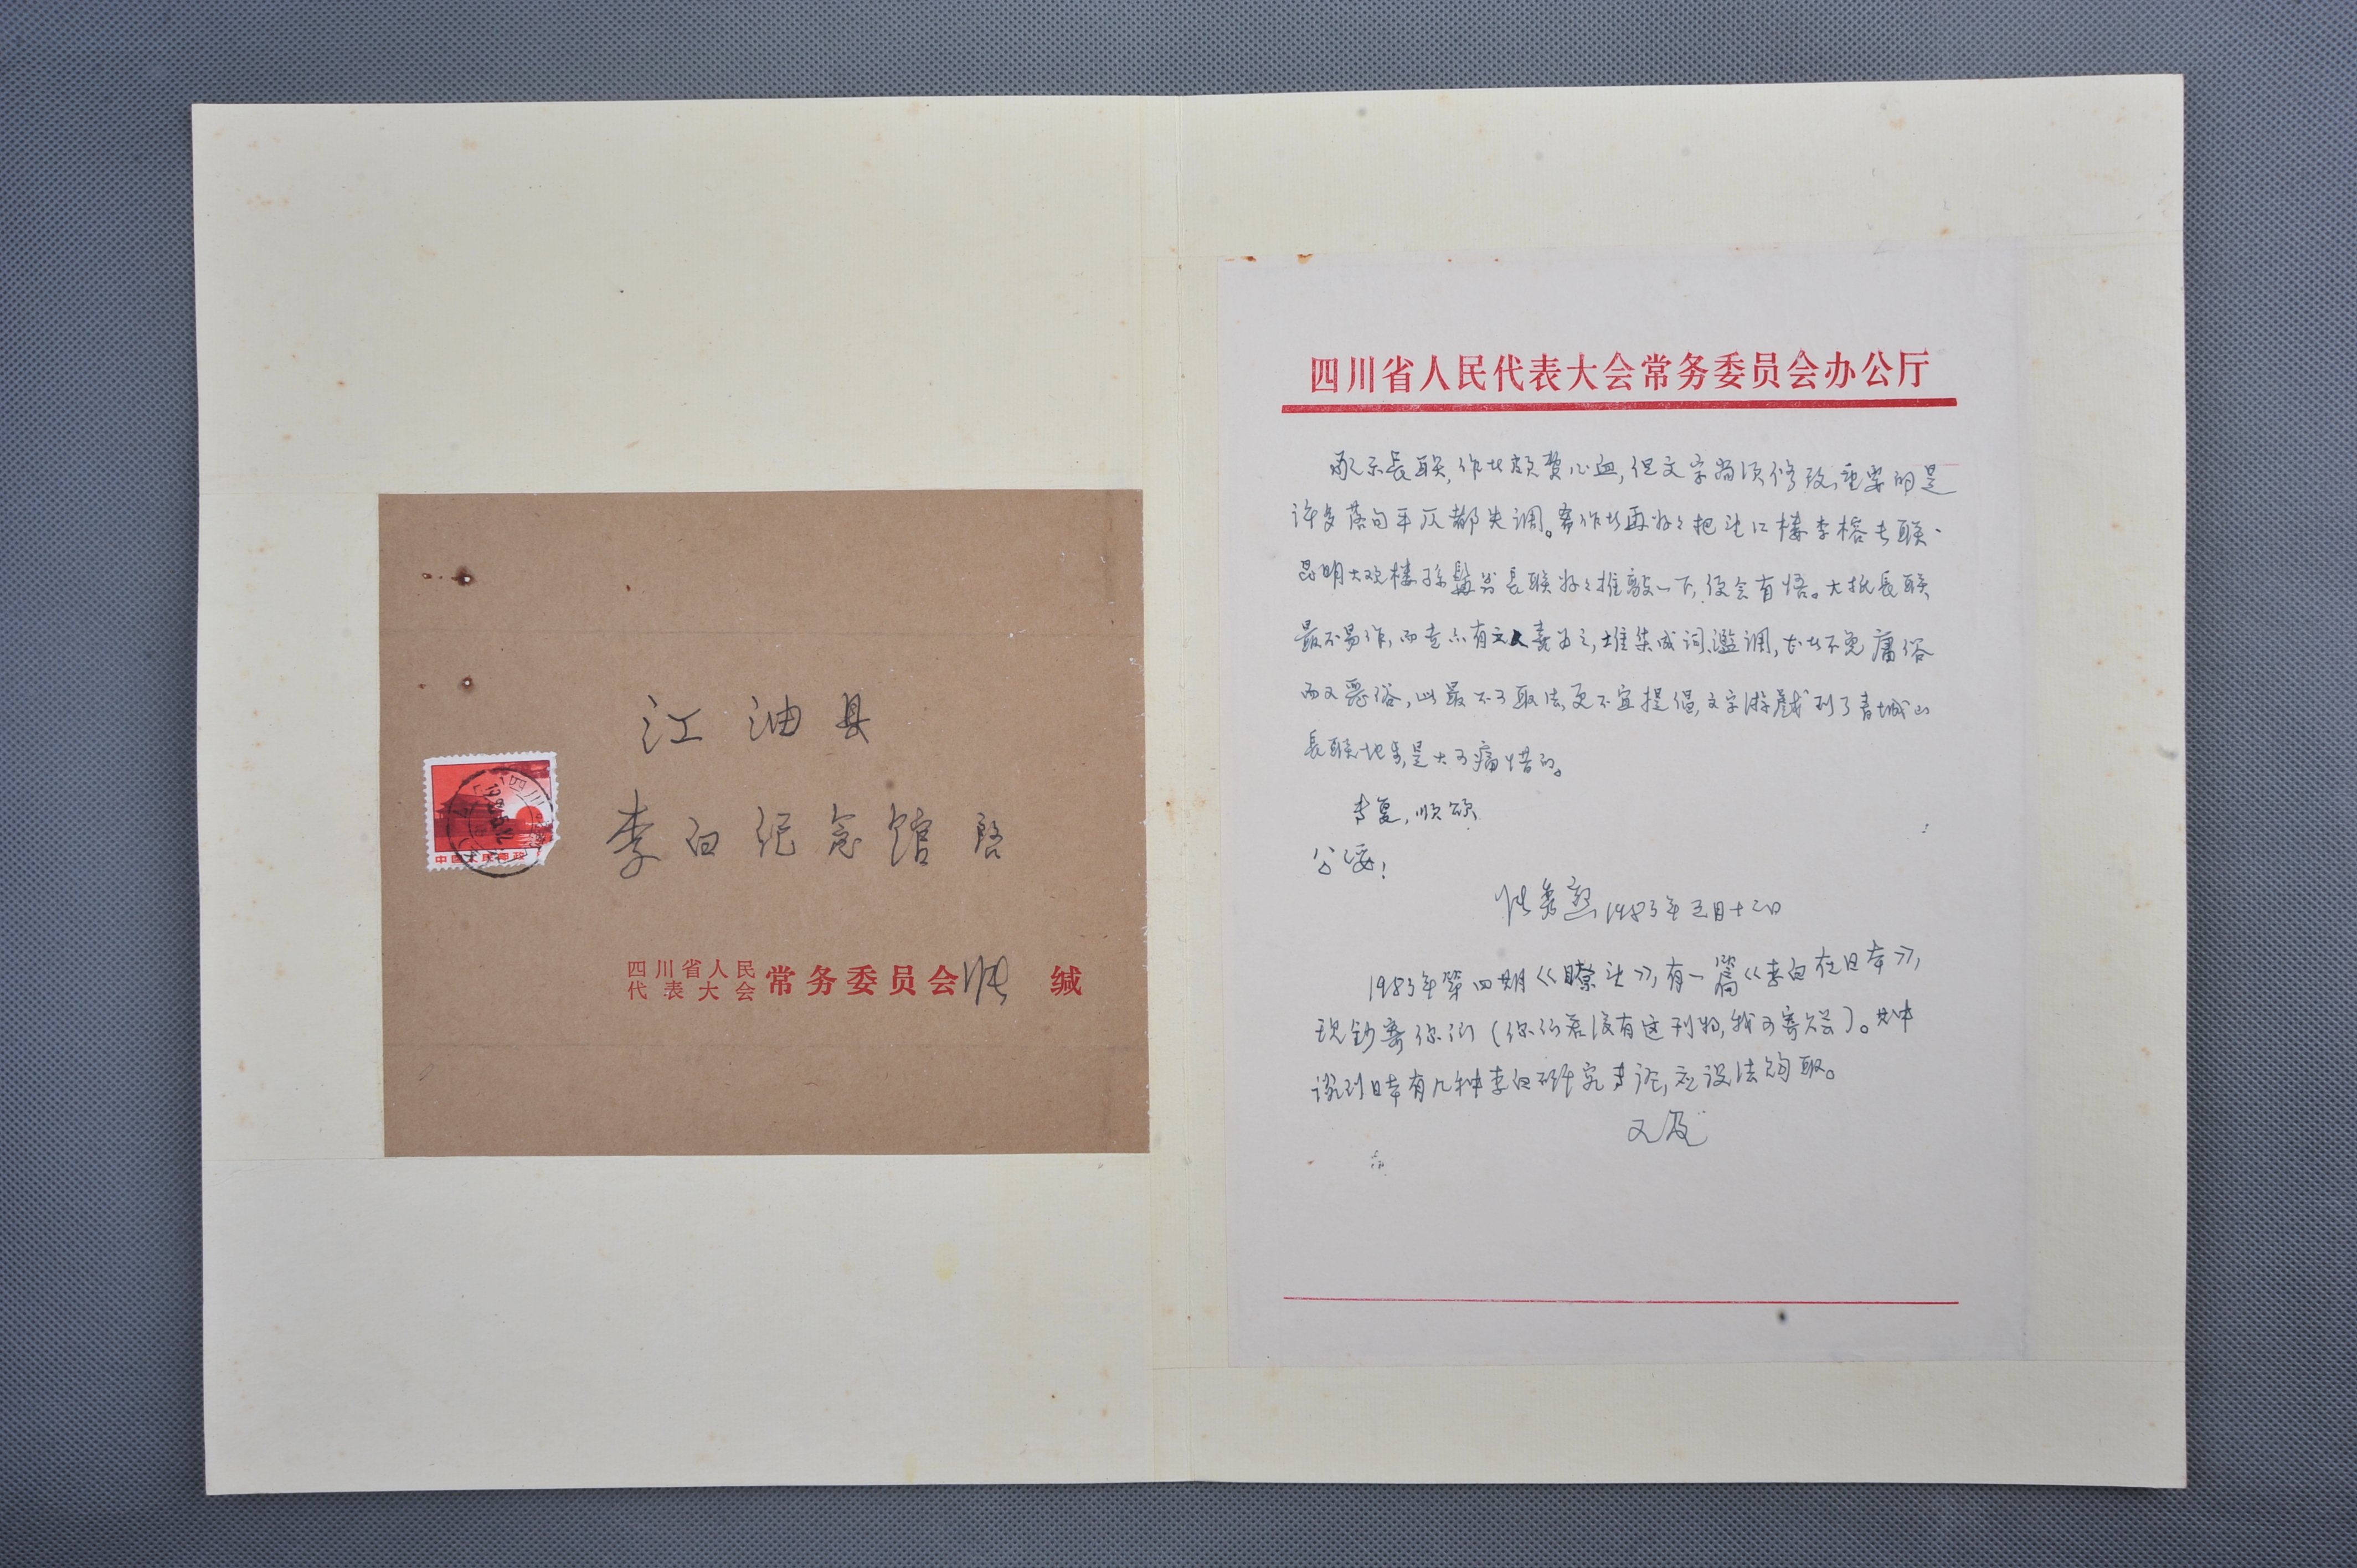 江油县
李白纪念馆 启
四川省人民
代表大会
常务委员会张 缄
中国人民邮政
四川
四川省人民代表大会常务委员会办公厅
承示長联,作者颇费心血,但文字尚须修改,重要的是
许多落句平仄都失调。希作者再好好把望江楼李榕长联、
昆明大观楼孙髯翁長联好好推敲一下,便会有悟。大抵長联
最不易作,而走点有文人喜为之,堆集成词、滥调,长者不免庸俗
而又恶俗,此最不可取法,更不宜提倡,文字游戏到了青城山
長联地步,是大可痛惜的。
专复,顺颂
公绥!
张秀熟 1983年五月十二日
1983年第四期《瞭望》,有一篇《李白在日本》,
现钞寄你们(你们若没有这刊物,我可寄公尝)。其中
谈到日本有几种李白研究专论,应设法购取。
又及